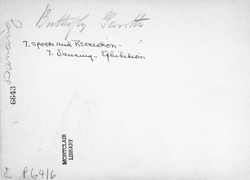 Butterfly
7. Sports and Recreation -
7. Dancing - Exhibition
Dancing
6643
MONTCLAIR
LIBRARY
P6416